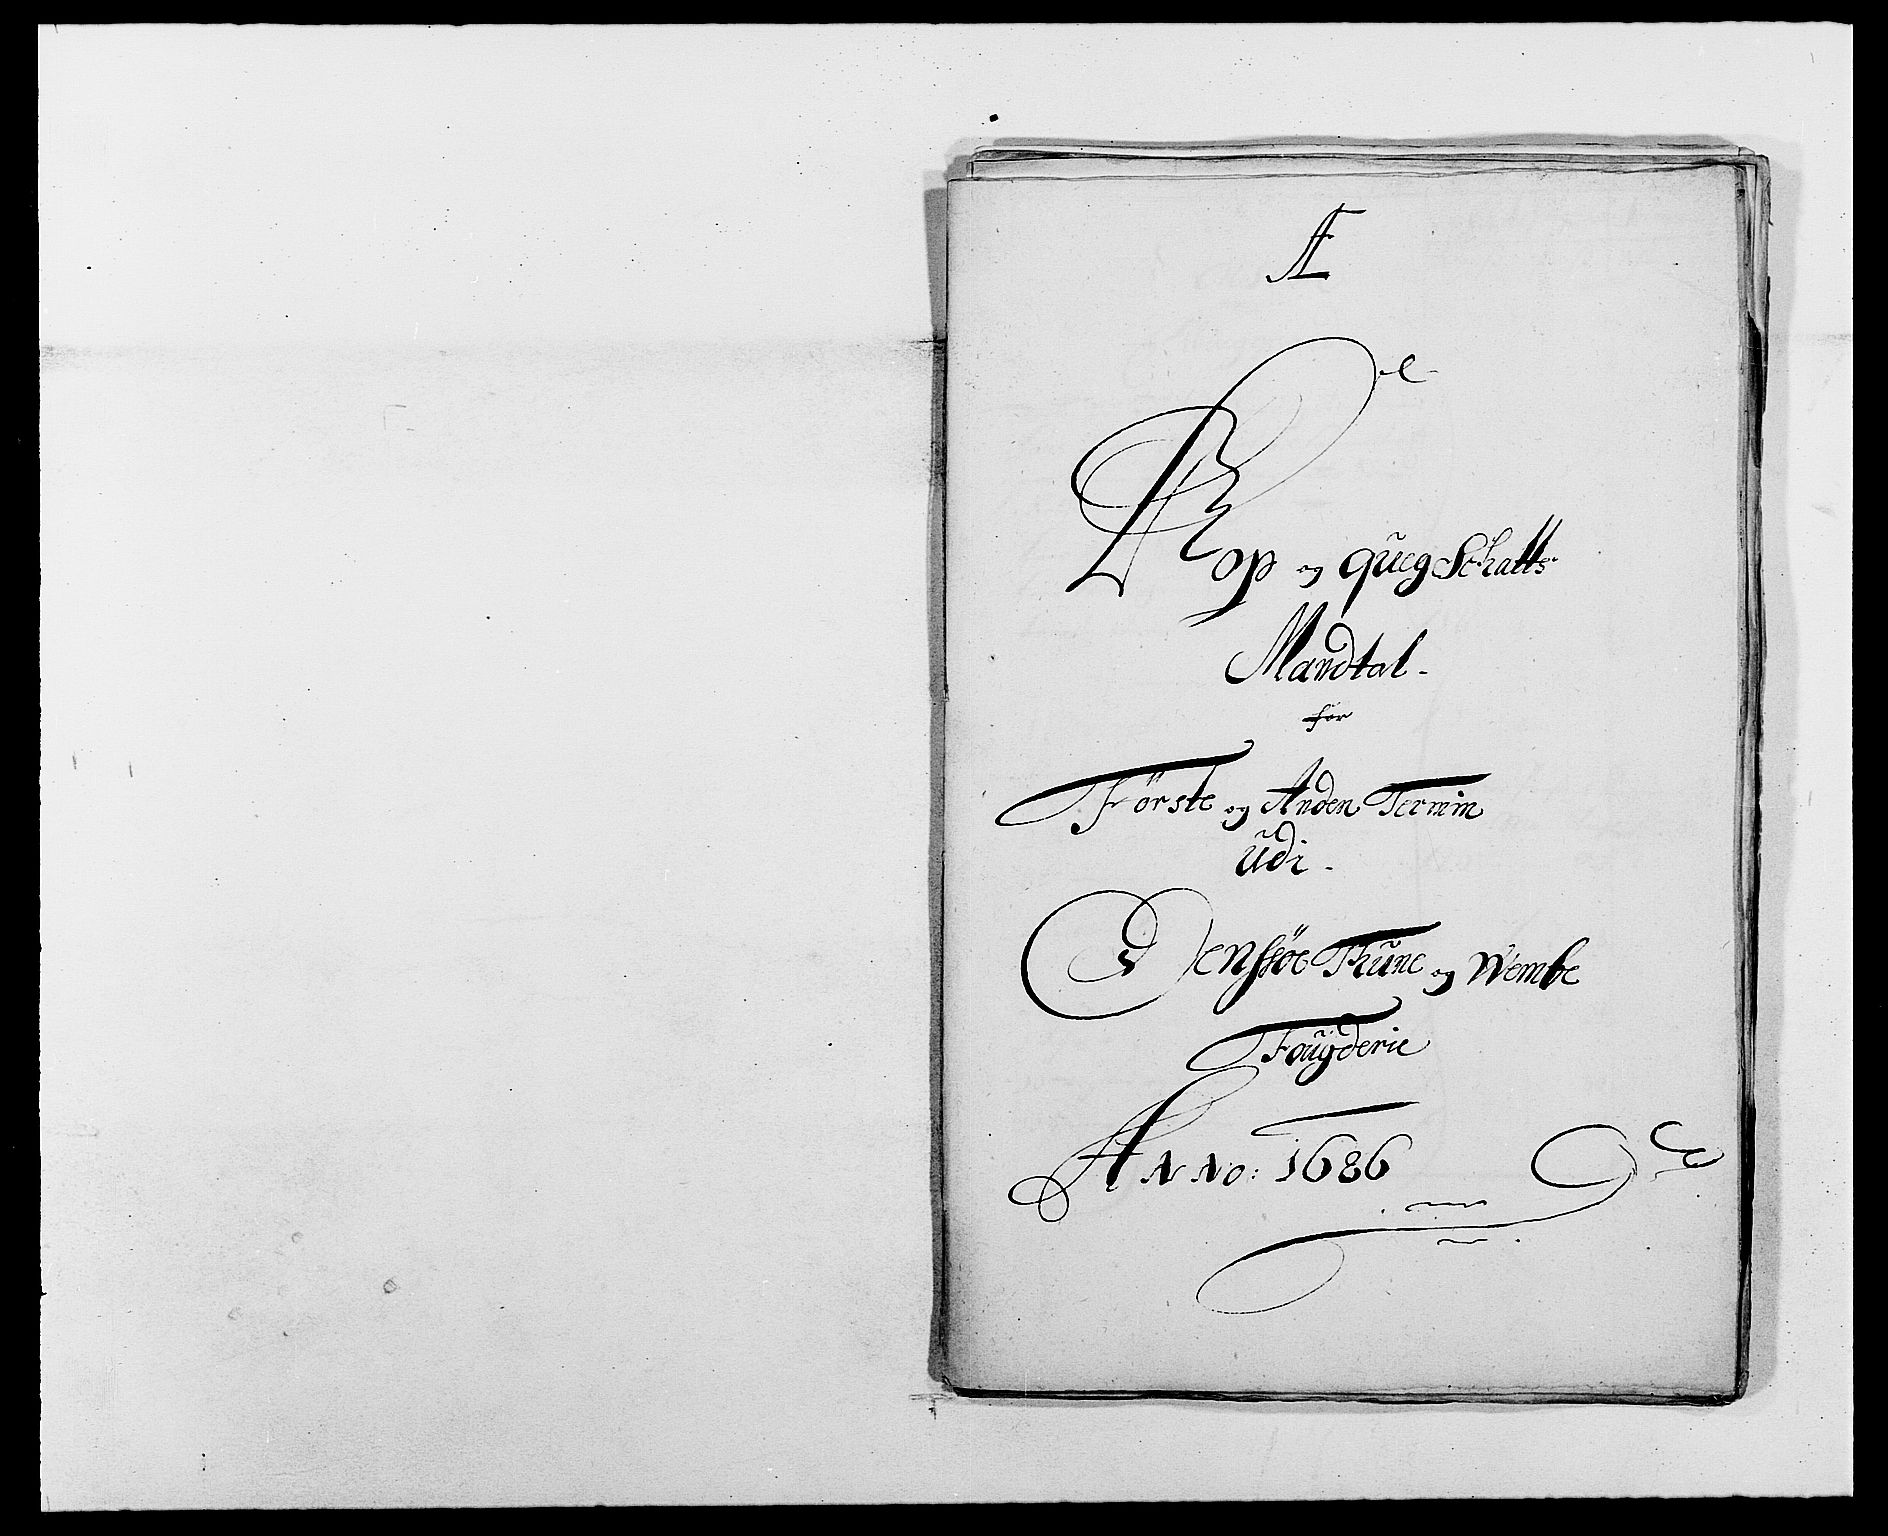 Æ
Kop og queg Schatts
Mandtal
for
Förste og Anden Termin
udi
Jenssøe Thune og Wembe
Fougderie
Anno: 1686